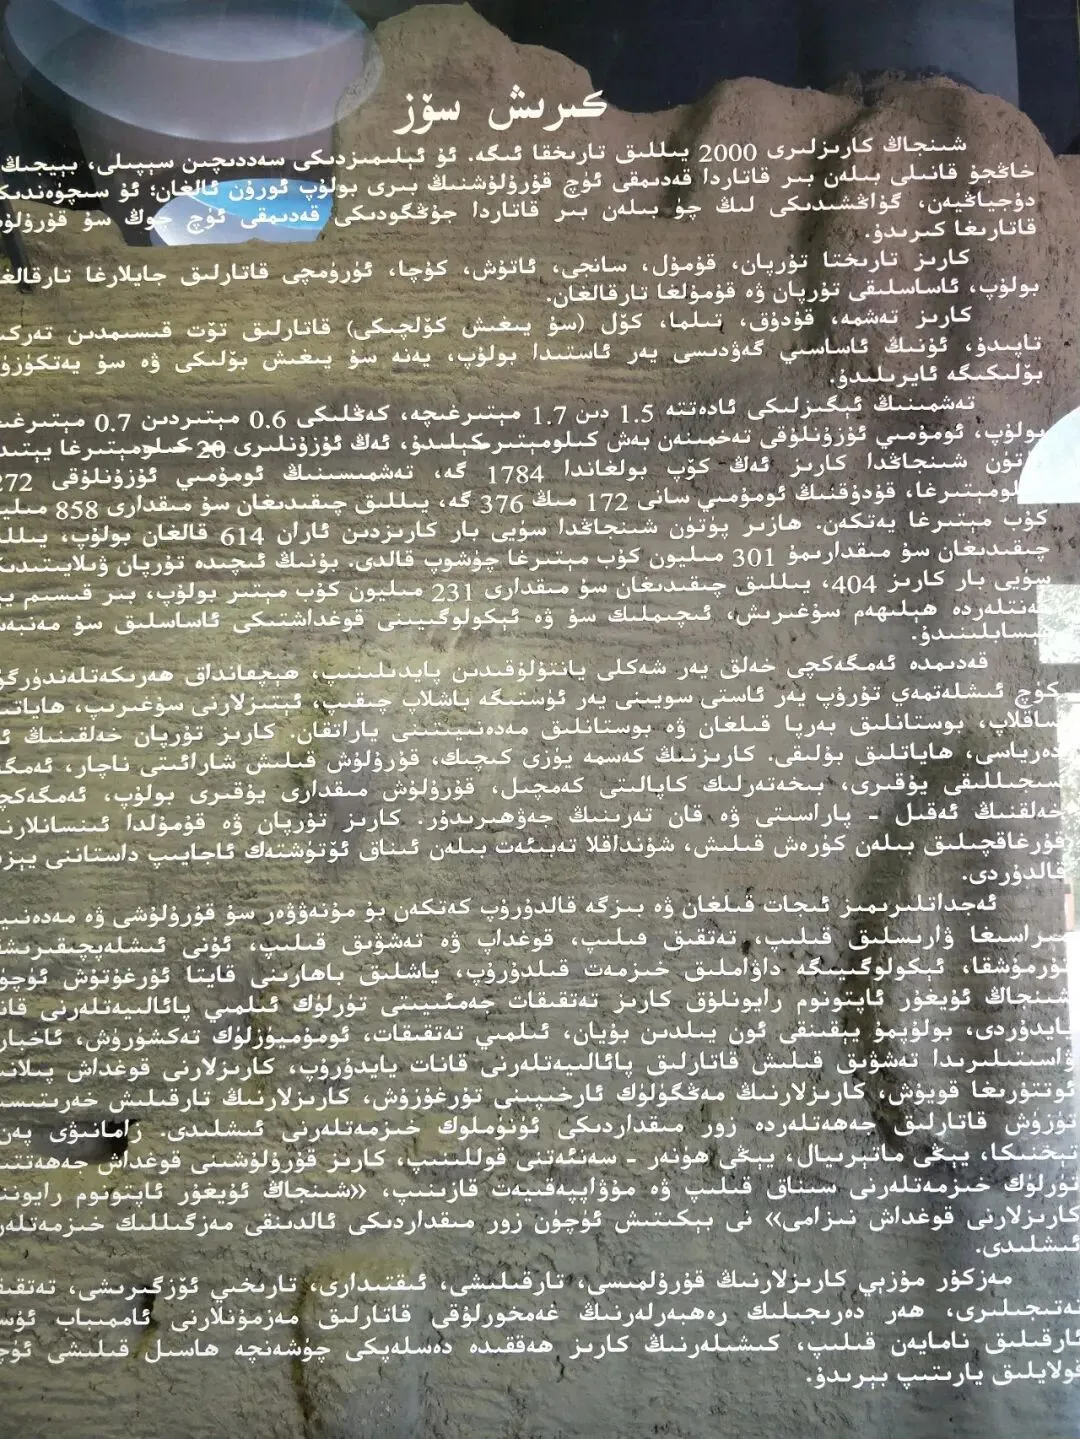 كىرىش سۆز
شىنجاڭ كارىزلىرى 2000 يىللىق تارىخقا ئىگە. ئۇ ئېلىمىزدىكى سەددىچىن سېپىلى، بېيجىڭ
خاڭجۇ قانىلى بىلەن بىر قاتاردا قەدىمقى ئۈچ قۇرۇلۇشنىڭ بىرى بولۇپ ئورۇن ئالغان؛ ئۇ سىچۈەندىكى
دۇجياڭيەن، گۇاڭشىدىكى لىڭ چۈ بىلەن بىر قاتاردا جۇڭگودىكى قەدىمقى ئۈچ چوڭ سۇ قۇرۇلۇش
قاتارىغا كىرىدۇ.
كارىز تارىختا تۇرپان، قۇمۇل، سانجى، ئاتۇش، كۇچا، ئۈرۈمچى قاتارلىق جايلارغا تارقالغان
بولۇپ، ئاساسلىقى تۇرپان ۋە قۇمۇلغا تارقالغان.
كارىز تەشمە، قۇدۇق، تىلما، كۆل (سۇ يىغىش كۆلچىكى) قاتارلىق تۆت قىسىمدىن تەركىب
تاپىدۇ، ئۇنىڭ ئاساسىي گەۋدىسى يەر ئاستىدا بولۇپ، يەنە سۇ يىغىش بۆلىكى ۋە سۇ يەتكۈزۈش
بۆلىكىگە ئايرىلىدۇ.
تەشمىنىڭ ئېگىزلىكى ئادەتتە 1.5 دىن 1.7 مېتىرغىچە، كەڭلىكى 0.6 مېتىردىن 0.7 مېتىرغىچە
بولۇپ، ئومۇمىي ئۇزۇنلۇقى تەخمىنەن بەش كىلومېتىر كېلىدۇ، ئەڭ ئۇزۇنلىرى 20 كىلومېتىرغا يېتىدۇ.
شىنجاڭدا كارىز ئەڭ كۆپ بولغاندا 1784 گە، تەشمىسىنىڭ ئومۇمىي ئۇزۇنلۇقى
قۇدۇقنىڭ ئومۇمىي سانى 172 مىڭ 376 گە، يىللىق چىقىدىغان سۇ مىقدارى 858 مىليون
كۇب مېتىرغا يەتكەن. ھازىر پۈتۈن شىنجاڭدا سۈيى بار كارىزدىن ئاران 614 قالغان بولۇپ، يىللىق
چىقىدىغان سۇ مىقدارىمۇ 301 مىليون كۇب مېتىرغا چۈشۈپ قالدى. بۇنىڭ ئىچىدە تۇرپان ۋىلايىتىدىكى
سۈيى بار كارىز 404، يىللىق چىقىدىغان سۇ مىقدارى 231 مىليون كۇب مېتىر بولۇپ، بىر قىسىم يېزا
كەنتلەردە ھېلىھەم سۇغىرىش، ئىچىملىك سۇ ۋە ئېكولوگىيىنى قوغداشتىكى ئاساسلىق سۇ مەنبەسى
ھېسابلىنىدۇ.
قەدىمدە ئەمگەكچى خەلق يەر شەكلى يانتۇلۇقىدىن پايدىلىنىپ، ھېچقانداق ھەرىكەتلەندۈرگۈچ
كۈچ ئىشلەتمەي تۇرۇپ يەر ئاستى سۈيىنى يەر ئۈستىگە باشلاپ چىقىپ، ئېتىزلارنى سۇغىرىپ، ھاياتنى
ساقلاپ، بوستانلىق بەرپا قىلغان ۋە بوستانلىق مەدەنىيىتىنى ياراتقان. كارىز تۇرپان خەلقىنىڭ
دەرياسى، ھاياتلىق بۇلىقى. كارىزنىڭ كەسمە يۈزى كىچىك، قۇرۇلۇش قىلىش شارائىتى ناچار، ئەمگەك
سىجىللىقى يۇقىرى، بىخەتەرلىك كاپالىتى كەمچىل، قۇرۇلۇش مىقدارى يۇقىرى بولۇپ، ئەمگەكچى
خەلقنىڭ ئەقىل - پاراسىتى ۋە قان تەرىنىڭ جەۋھىرىدۇر. كارىز تۇرپان ۋە قۇمۇلدا ئىنسانلارنىڭ
قۇرغاقچىلىق بىلەن كۈرەش قىلىش، شۇنداقلا تەبىئەت بىلەن ئىناق ئۆتۈشتەك ئاجايىپ داستاننى يېزىپ
قالدۇردى.
ئەجداتلىرىمىز ئىجات قىلغان ۋە بىزگە قالدۇرۇپ كەتكەن بۇ مۇنەۋۋەر سۇ قۇرۇلۇشى ۋە مەدەنىيەت
مىراسىغا ۋارىسلىق قىلىپ، تەتقىق قىلىپ، قوغداپ ۋە تەشۋىق قىلىپ، ئۇنى ئىشلەپچىقىرىشقا
تۇرمۇشقا، ئېكولوگىيىگە داۋاملىق خىزمەت قىلدۇرۇپ، ياشلىق باھارىنى قايتا ئۇرغۇتۇش ئۈچۈن
شىنجاڭ ئۇيغۇر ئاپتونوم رايونلۇق كارىز تەتقىقات جەمئىيىتى تۈرلۈك ئىلمىي پائالىيەتلەرنى قانات
يايدۇردى، بولۇپمۇ يېقىنقى ئون يىلدىن بۇيان، ئىلمىي تەتقىقات، ئومۇميۈزلۈك تەكشۈرۈش، ئاخبارات
ۋاستىلىرىدا تەشۋىق قىلىش قاتارلىق پائالىيەتلەرنى قانات يايدۇرۇپ، كارىزلارنى قوغداش پىلانىنى
ئوتتۇرىغا قويۇش، كارىزلارنىڭ مەڭگۈلۈك ئارخىپىنى تۇرغۇزۇش، كارىزلارنىڭ تارقىلىش خەرىتىسىنى
تۈزۈش قاتارلىق جەھەتلەردە زور مىقداردىكى ئۈنۈملۈك خىزمەتلەرنى ئىشلىدى. زامانىۋى پەن
تېخنىكا، يېڭى ماتېرىيال، يېڭى ھۈنەر - سەنئەتنى قوللىنىپ، كارىز قۇرۇلۇشىنى قوغداش جەھەتتىن
تۈرلۈك خىزمەتلەرنى سىناق قىلىپ ۋە مۇۋاپىپەقىيەت قازىنىپ، «شىنجاڭ ئۇيغۇر ئاپتونوم رايونى
كارىزلارنى قوغداش نىزامى» نى بېكىتىش ئۈچۈن زور مىقداردىكى ئالدىنقى مەزگىللىك خىزمەتلەرنى
ئىشلىدى.
مەزكۇر مۇزېي كارىزلارنىڭ قۇرۇلمىسى، تارقىلىشى، ئىقتىدارى، تارىخىي ئۆزگىرىشى، تەتقىقات
نەتىجىلىرى، ھەر دەرىجىلىك رەھبەرلەرنىڭ غەمخورلۇقى قاتارلىق مەزمۇنلارنى ئاممىباب
ئارقىلىق نامايەن قىلىپ، كىشىلەرنىڭ كارىز ھەققىدە دەسلەپكى چۈشەنچە ھاسىل قىلىشى ئۈچۈن
قولايلىق يارىتىپ بېرىدۇ.